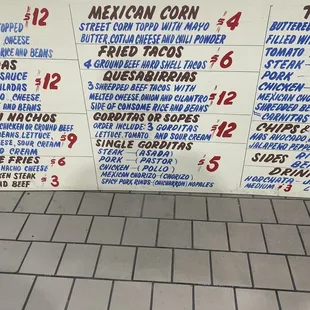 MEXICAN CORN
STREET CORN TOPPED WITH MAYO $4
BUTTER, COTIJA CHEESE AND CHILI POWDER
FRIED TACOS
4 GROUND BEEF HARD SHELL TACOS $6
QUESABIRRIAS
3 SHREDDED BEEF TACOS WITH
MELTED CHEESE, ONION AND CILANTRO $12
SIDE OF CONSOME RICE AND BEANS
GORDITAS OR SOPES
ORDER INCLUDE: 3 GORDITAS
LETTUCE, TOMATO AND SOUR CREAM $12
SINGLE GORDITAS
STEAK - (ASADA)
PORK - (PASTOR)
CHICKEN - (POLLO) $5
MEXICAN CHORIZO - (CHORIZO)
SPICY PORK RINDS - (CHICHARRON) NOPALES
$12
CHEESE
RICE AND BEANS
SAUCE $12
CHEESE
AND BEANS
NACHOS
CHICKEN OR GROUND BEEF
BEANS, LETTUCE, $9
CHEESE, SOUR CREAM
CREAM
FRIES $6
NACHO CHEESE
STEAK $3
BEEF
BUTTER
FILLED WITH
TOMATO
STEAK -
PORK -
CHICKEN -
MEXICAN
SHREDDED
CHIPS &
JALAPENO
SIDES
DRINK
HORCHATA
MEDIUM $3